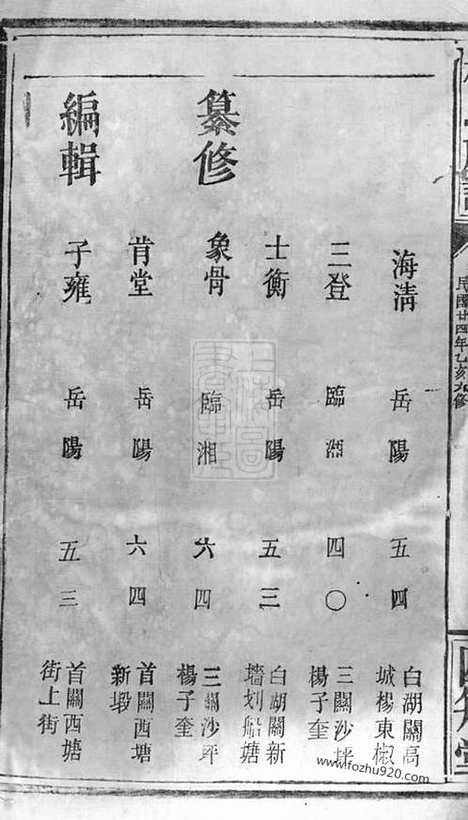 民國廿四年乙亥九修
海清 岳陽 五四 白湖關高城楊東椒
三登 臨湘 四〇 三關沙坪楊子奎
士衡 岳陽 五三 白湖關新墻划船塘
纂修 象骨 臨湘 六四 三關沙坪楊子奎
肯堂 岳陽 六四 首關西塘新塅
編輯 子雍 岳陽 五三 首關西塘街上街
www.fozhu920.com